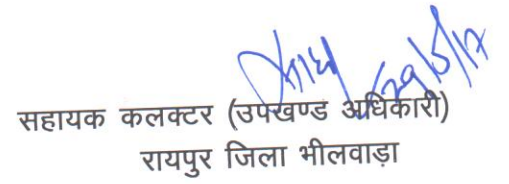 29/5/17
सहायक कलक्टर (उपखण्ड अधिकारी)
रायपुर जिला भीलवाड़ा